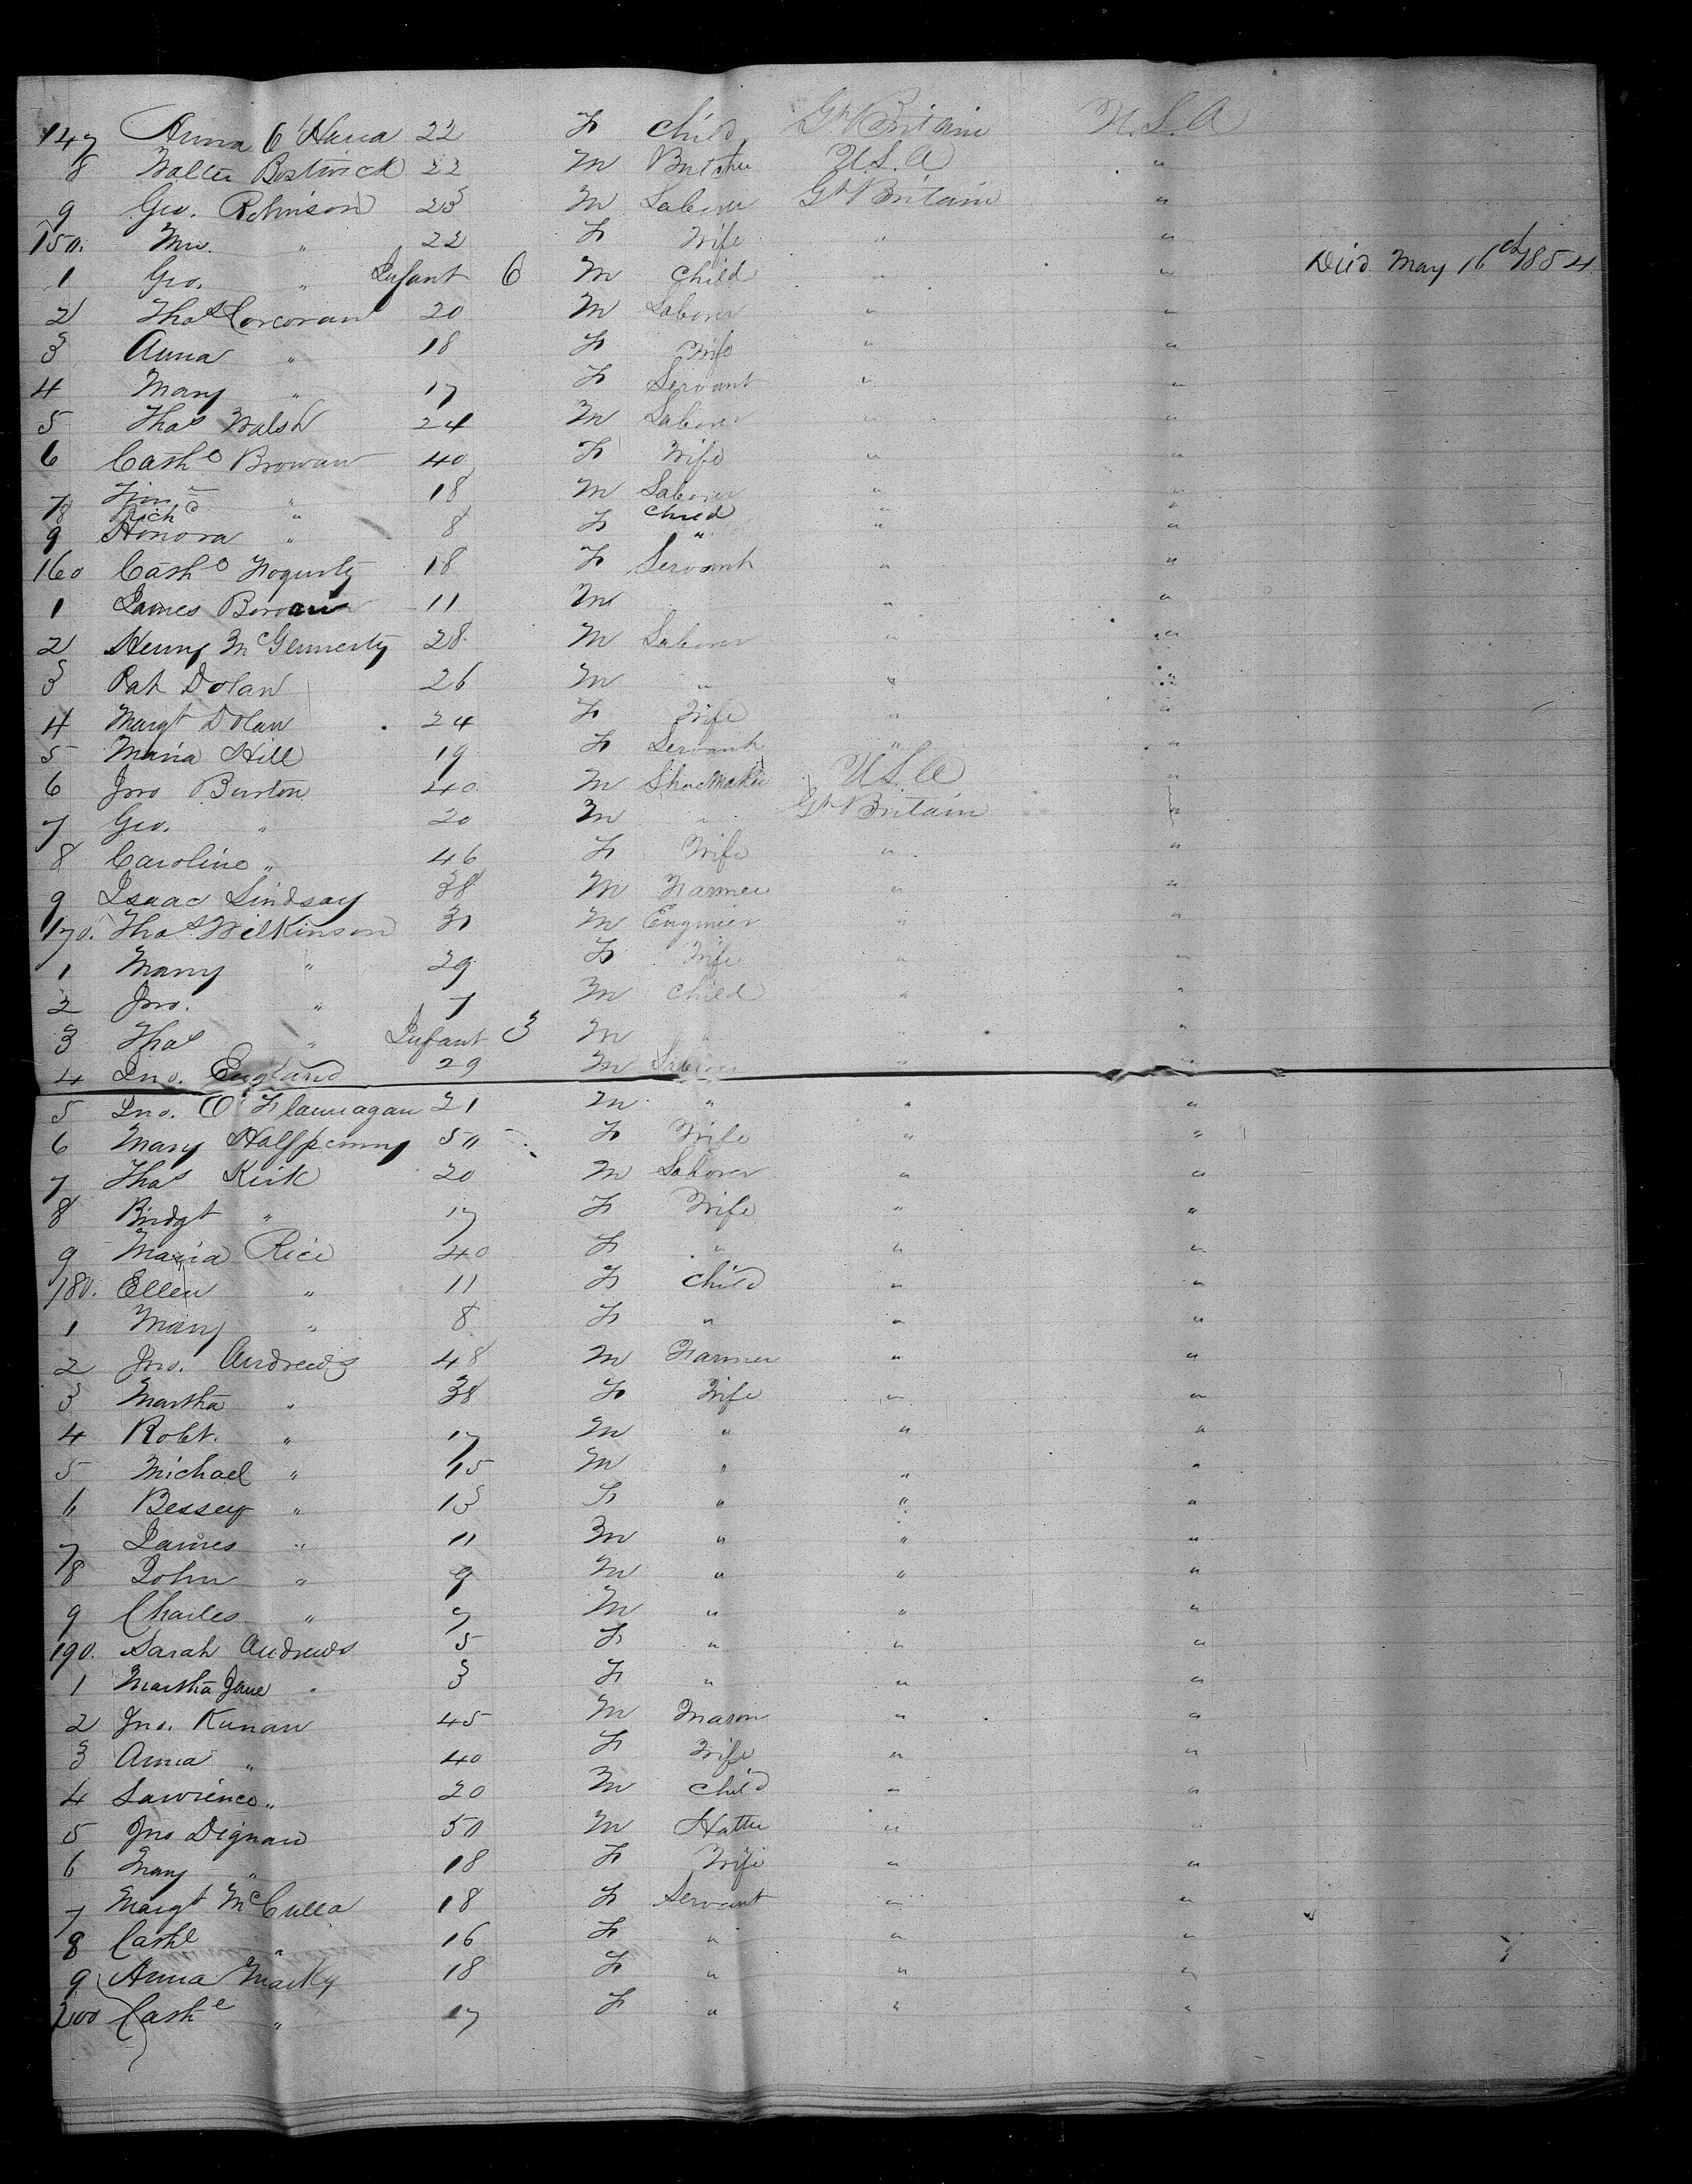 147 Anna O'Hara 22 F Child Gt Britain U.S.A
8 Walter Bostwick 22 M Butcher U.S.A "
9 Geo. Robinson 23 M Laborer Gt Britain "
150. Mrs. " 22 F Wife " "
1 Geo. " Infant 6 M Child " " Died May 16th 1854
2 Thos Corcoran 20 M Laborer " "
3 Anna " 18 F Wife " "
4 Mary " 17 F Servant " "
5 Thos Walsh 24 M Laborer " "
6 Cathe Browan 40 F Wife " "
7 " 18 M Laborer " "
8 Richd " Child " "
9 Honora " 8 F " " "
160 Cathe Fogurty 18 F Servant " "
1 James Borvan 11 M " "
2 Henry McGennerty 28 M Laborer " "
3 Pat Dolan 26 M " " "
4 Margt Dolan 24 F Wife " "
5 Maria Hill 19 F Servant " "
6 Jno Burton 40 M Shoemaker U.S.A "
7 Geo. " 20 M " Gt Britain "
8 Caroline " 46 F Wife " "
9 Isaac Lindsay 38 M Farmer " "
170. Thos Wilkinson 31 M Engineer " "
1 Mary " 29 F Wife " "
2 Jno. " 7 M Child " "
3 Thos " Infant 3 M " " "
4 Jno. England 29 M Laborer " "
5 Jno. O'Flannagan 21 M " " "
6 Mary Halfpenny 50 F Wife " "
7 Thos Kirk 20 M Laborer " "
8 Bridgt " 17 F Wife " "
9 Maria Rice 40 F " " "
180. Ellen " 11 F Child " "
1 Mary " 8 F " " "
2 Jno. Andrews 48 M Farmer " "
3 Martha " 38 F Wife " "
4 Robt. " 17 M " " "
5 Michael " 15 M " " "
6 Bessey " 13 F " " "
7 James " 11 M " " "
8 John " 9 M " " "
9 Charles " 7 M " " "
190. Sarah Andrews 5 F " " "
1 Martha Jane " 3 F " " "
2 Jno. Kunan 45 M Mason " "
3 Anna " 40 F Wife " "
4 Lawrence " 20 M Child " "
5 Jno Dignan 50 M Hatter " "
6 Mary " 18 F Wife " "
7 Margt McCulla 18 F Servant " "
8 Cathe " 16 F " " "
9 Anna Macky 18 F " " "
200 Cathe " 17 F " " "